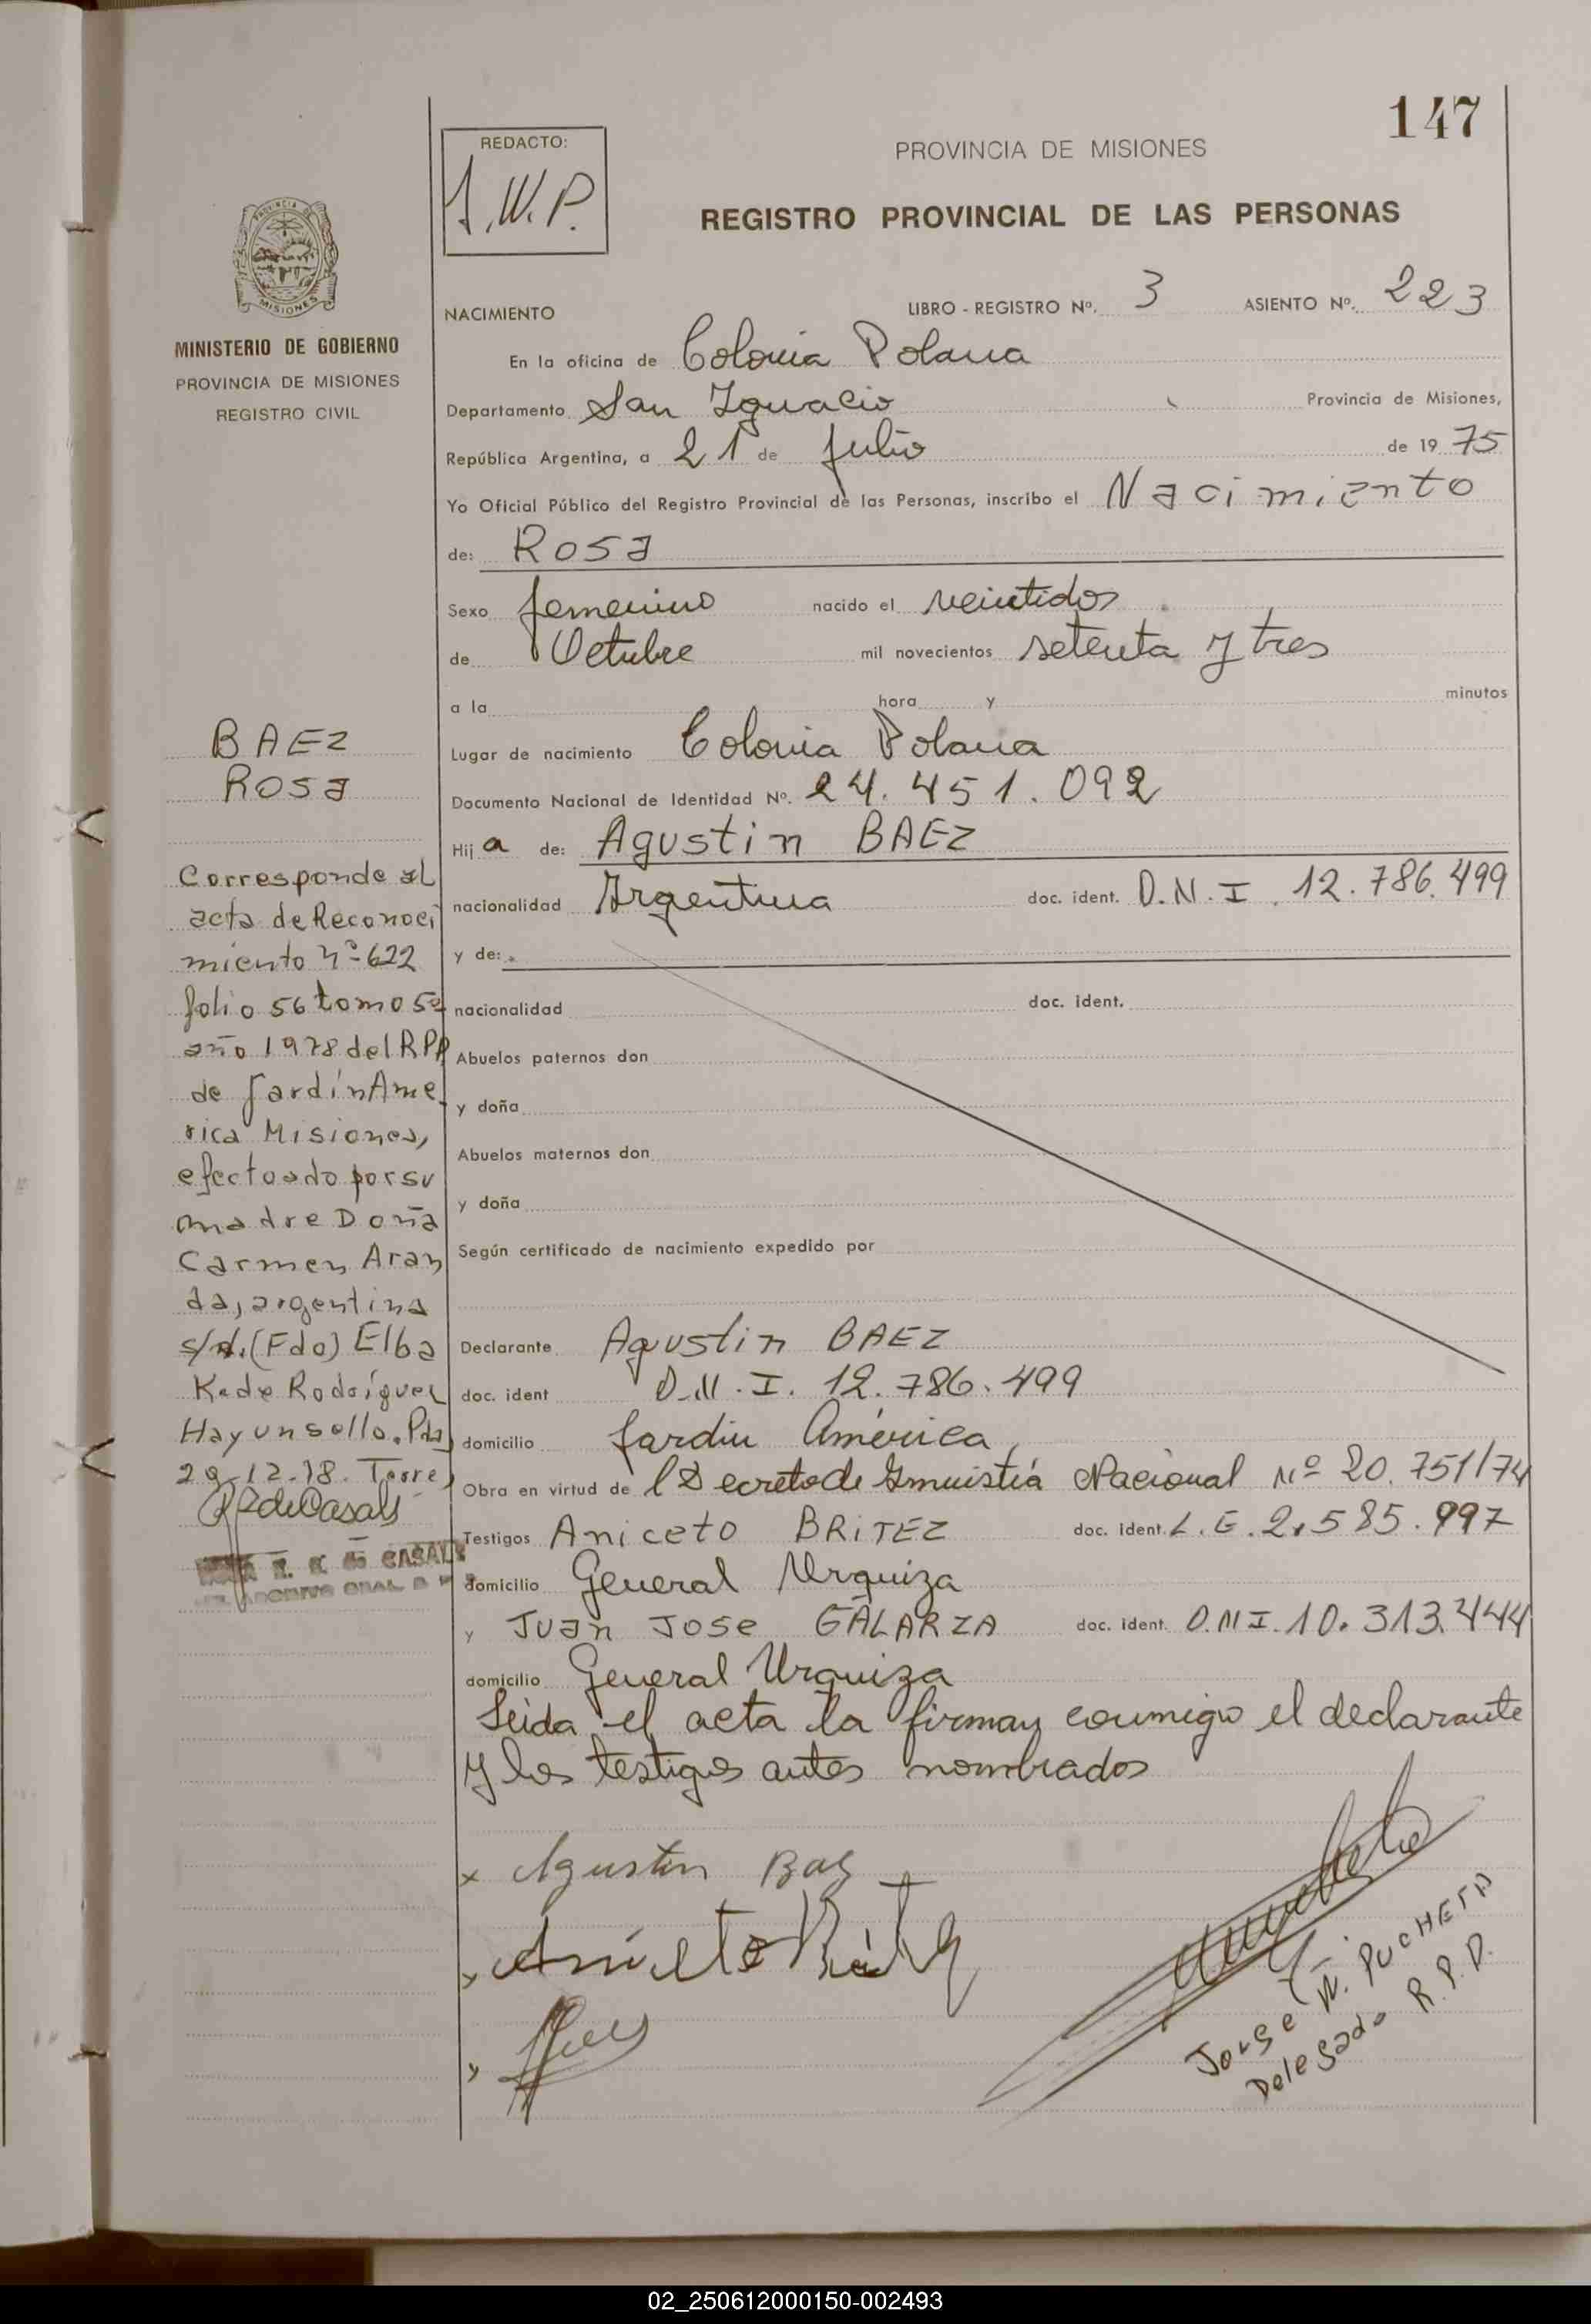 147
REDACTO:
J.W.P.
PROVINCIA DE MISIONES
REGISTRO PROVINCIAL DE LAS PERSONAS
MISIONES
MINISTERIO DE GOBIERNO
PROVINCIA DE MISIONES
REGISTRO CIVIL
NACIMIENTO LIBRO - REGISTRO Nº. 3 ASIENTO Nº. 223
En la oficina de Colonia Polana
Departamento San Ignacio Provincia de Misiones,
República Argentina, a 21 de Julio de 1975
Yo Oficial Público del Registro Provincial de las Personas, inscribo el Nacimiento
de: Rosa
Sexo femenino nacido el veintidos
de Octubre mil novecientos setenta y tres
a la hora y minutos
Lugar de nacimiento Colonia Polana
Documento Nacional de Identidad Nº. 24.451.092
Hija de: Agustin BAEZ
nacionalidad Argentina doc. ident. D.N.I. 12.786.499
y de:
nacionalidad doc. ident.
Abuelos paternos don
y doña
Abuelos maternos don
y doña
Según certificado de nacimiento expedido por
Declarante Agustin BAEZ
doc. ident D.N.I. 12.786.499
domicilio Jardin América,
Obra en virtud de l Decreto de Amnistiá Nacional Nº 20.751/74
Testigos Aniceto BRiTEZ doc. ident. L.E. 2.585.997
domicilio General Urquiza
y Juan Jose GALARZA doc. ident. D.N.I. 10.313.444
domicilio General Urquiza
Leida el acta la firman conmigo el declarante
y los testigos antes nombrados
BAEZ
Rosa
Corresponde al
acta de Reconoci
miento nº 622
folio 56 tomo 5º
año 1978 del RPP
de Jardín Ame
rica Misiones,
efectuado por su
madre Doña
Carmen Aran
da, argentina
s/d. (Fdo) Elba
K. de Rodríguez
Hay un sello. Pdas
29-12-78. Torres
R de Casals
R. K. de CASALS
ARCHIVO GRAL.
x Agustin Baez
Aniceto Britez
Jorge W. PUCHETA
Delegado R.P.P.
02_250612000150-002493